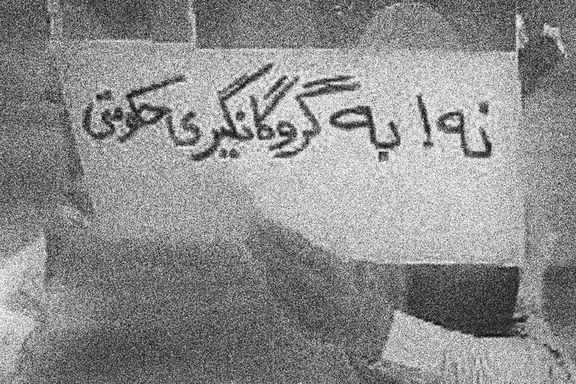 نه! به گروگانگیری حکومتی